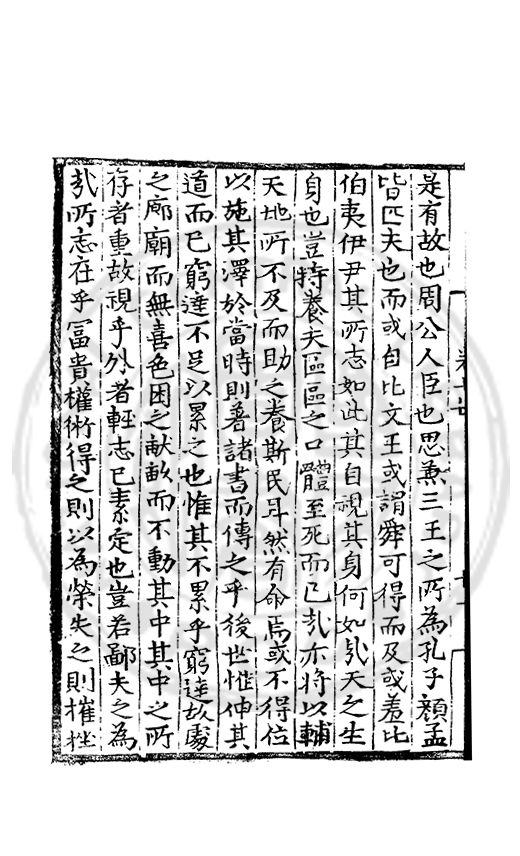 是有故也周公人臣也思兼三王之所為孔子顏孟
皆匹夫也而或自比文王或謂舜可得而及或羞比
伯夷伊尹其所志如此其自視其身何如哉天之生
身也豈特養夫區區之口體至死而已哉亦將以輔
天地所不及而助之養斯民耳然有命焉或不得位
以施其澤於當時則著諸書而傳之乎後世惟伸其
道而已窮達不足以累之也惟其不累乎窮達故處
之廊廟而無喜色困之献畝而不動其中其中之所
存者重故視乎外者輕志已素定也豈若鄙夫之為
哉所志在乎富貴權術得之則以為榮失之則摧挫